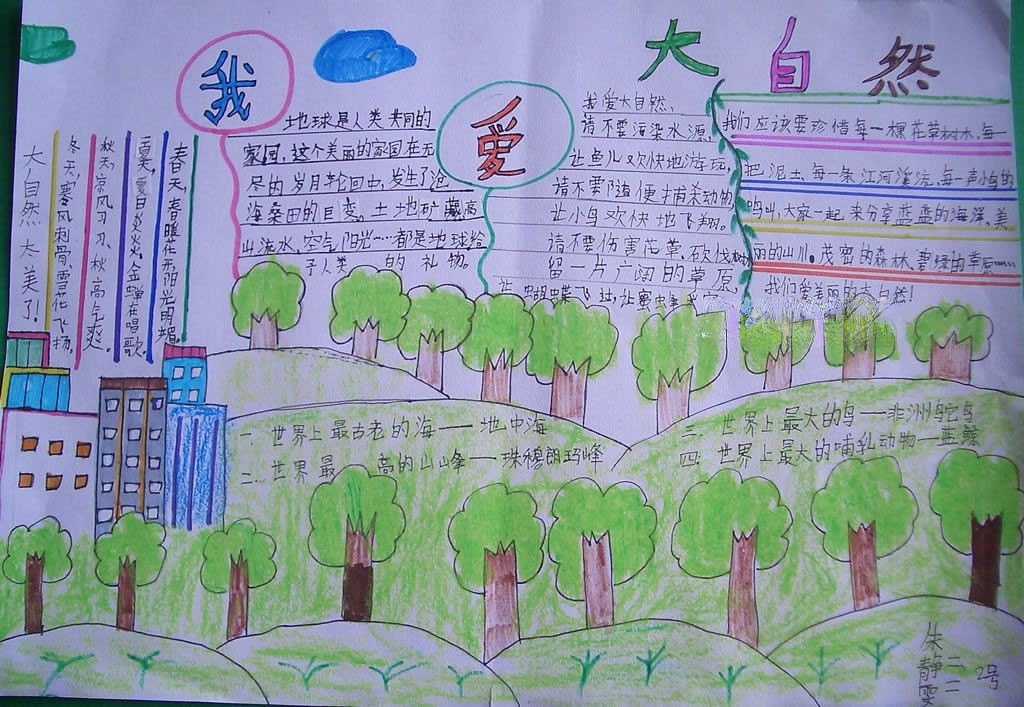 我爱大自然
大自然太美了！
冬天，寒风刺骨，雪花飞扬。
秋天，凉风习习，秋高气爽。
夏天，夏日炎炎，金蝉在唱歌
春天，春暖花开阳光明媚。
地球是人类共同的
家园，这个美丽的家园在无
尽的岁月轮回中，发生了沧
海桑田的巨变。土地矿藏高
山流水、空气阳光……都是地球给
予人类的礼物。
我爱大自然，
请不要污染水源，
让鱼儿欢快地游玩，
请不要随便捕杀动物
让小鸟欢快地飞翔。
请不要伤害花草，砍伐树
留一片广阔的草原，
让蝴蝶飞过，让蜜蜂
我们应该要珍惜每一棵花草树木、每一
把泥土、每一条江河溪流、每一声小鸟的
鸣叫，大家一起来分享蓝蓝的海洋、美
丽的山川。茂密的森林、碧绿的草原……
我们爱美丽的大自然！
一、世界上最古老的海——地中海
二、世界最高的山峰——珠穆朗玛峰
三、世界上最大的鸟——非洲鸵鸟
四、世界上最大的哺乳动物——蓝鲸
朱静雯
二二
2号